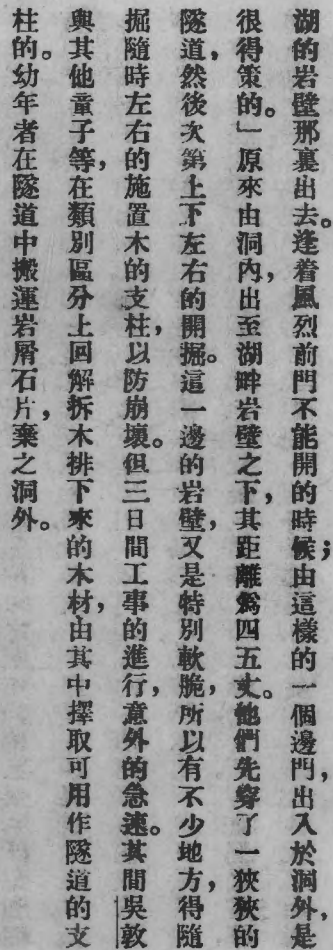 湖的岩壁那裏出去。逢着風烈前門不能開的時候；由這樣的一個邊門，出入於洞外，是
很得策的。」原來由洞內，出至湖畔岩壁之下，其距離爲四五丈。他們先穿了一狹狹的
隧道，然後次第上下左右的開掘。這一邊的岩壁，又是特別軟脆，所以有不少地方，得隨
掘隨時左右的施置木的支柱，以防崩壞。但三日間工事的進行，意外的急速。其間吳敦
與其他童子等，在類別區分上回解拆木排下來的木材，由其中擇取可用作隧道的支
柱的。幼年者在隧道中搬運岩屑石片，棄之洞外。